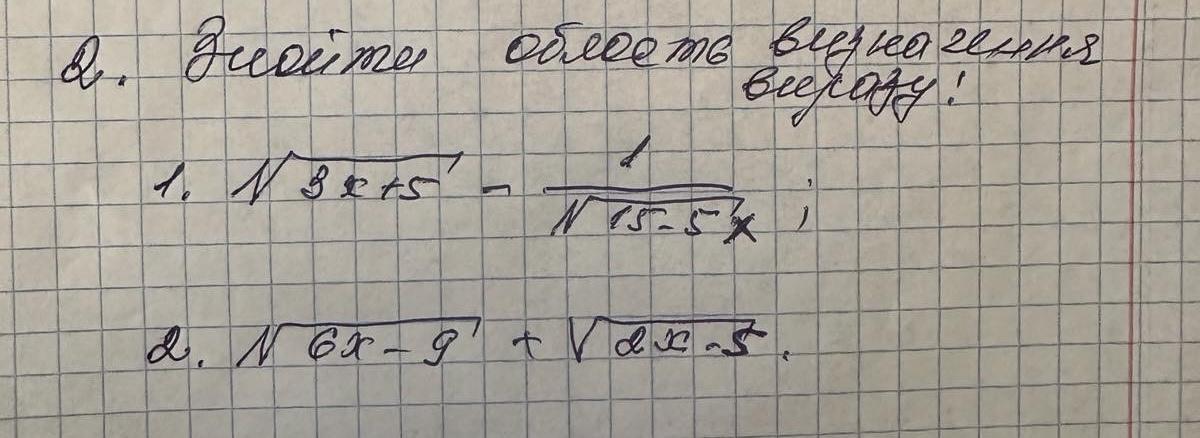 2. Знайти область визначення
виразу:
1. √3x+5 - 1/√15-5x ;
2. √6x-9 + √2x-5.